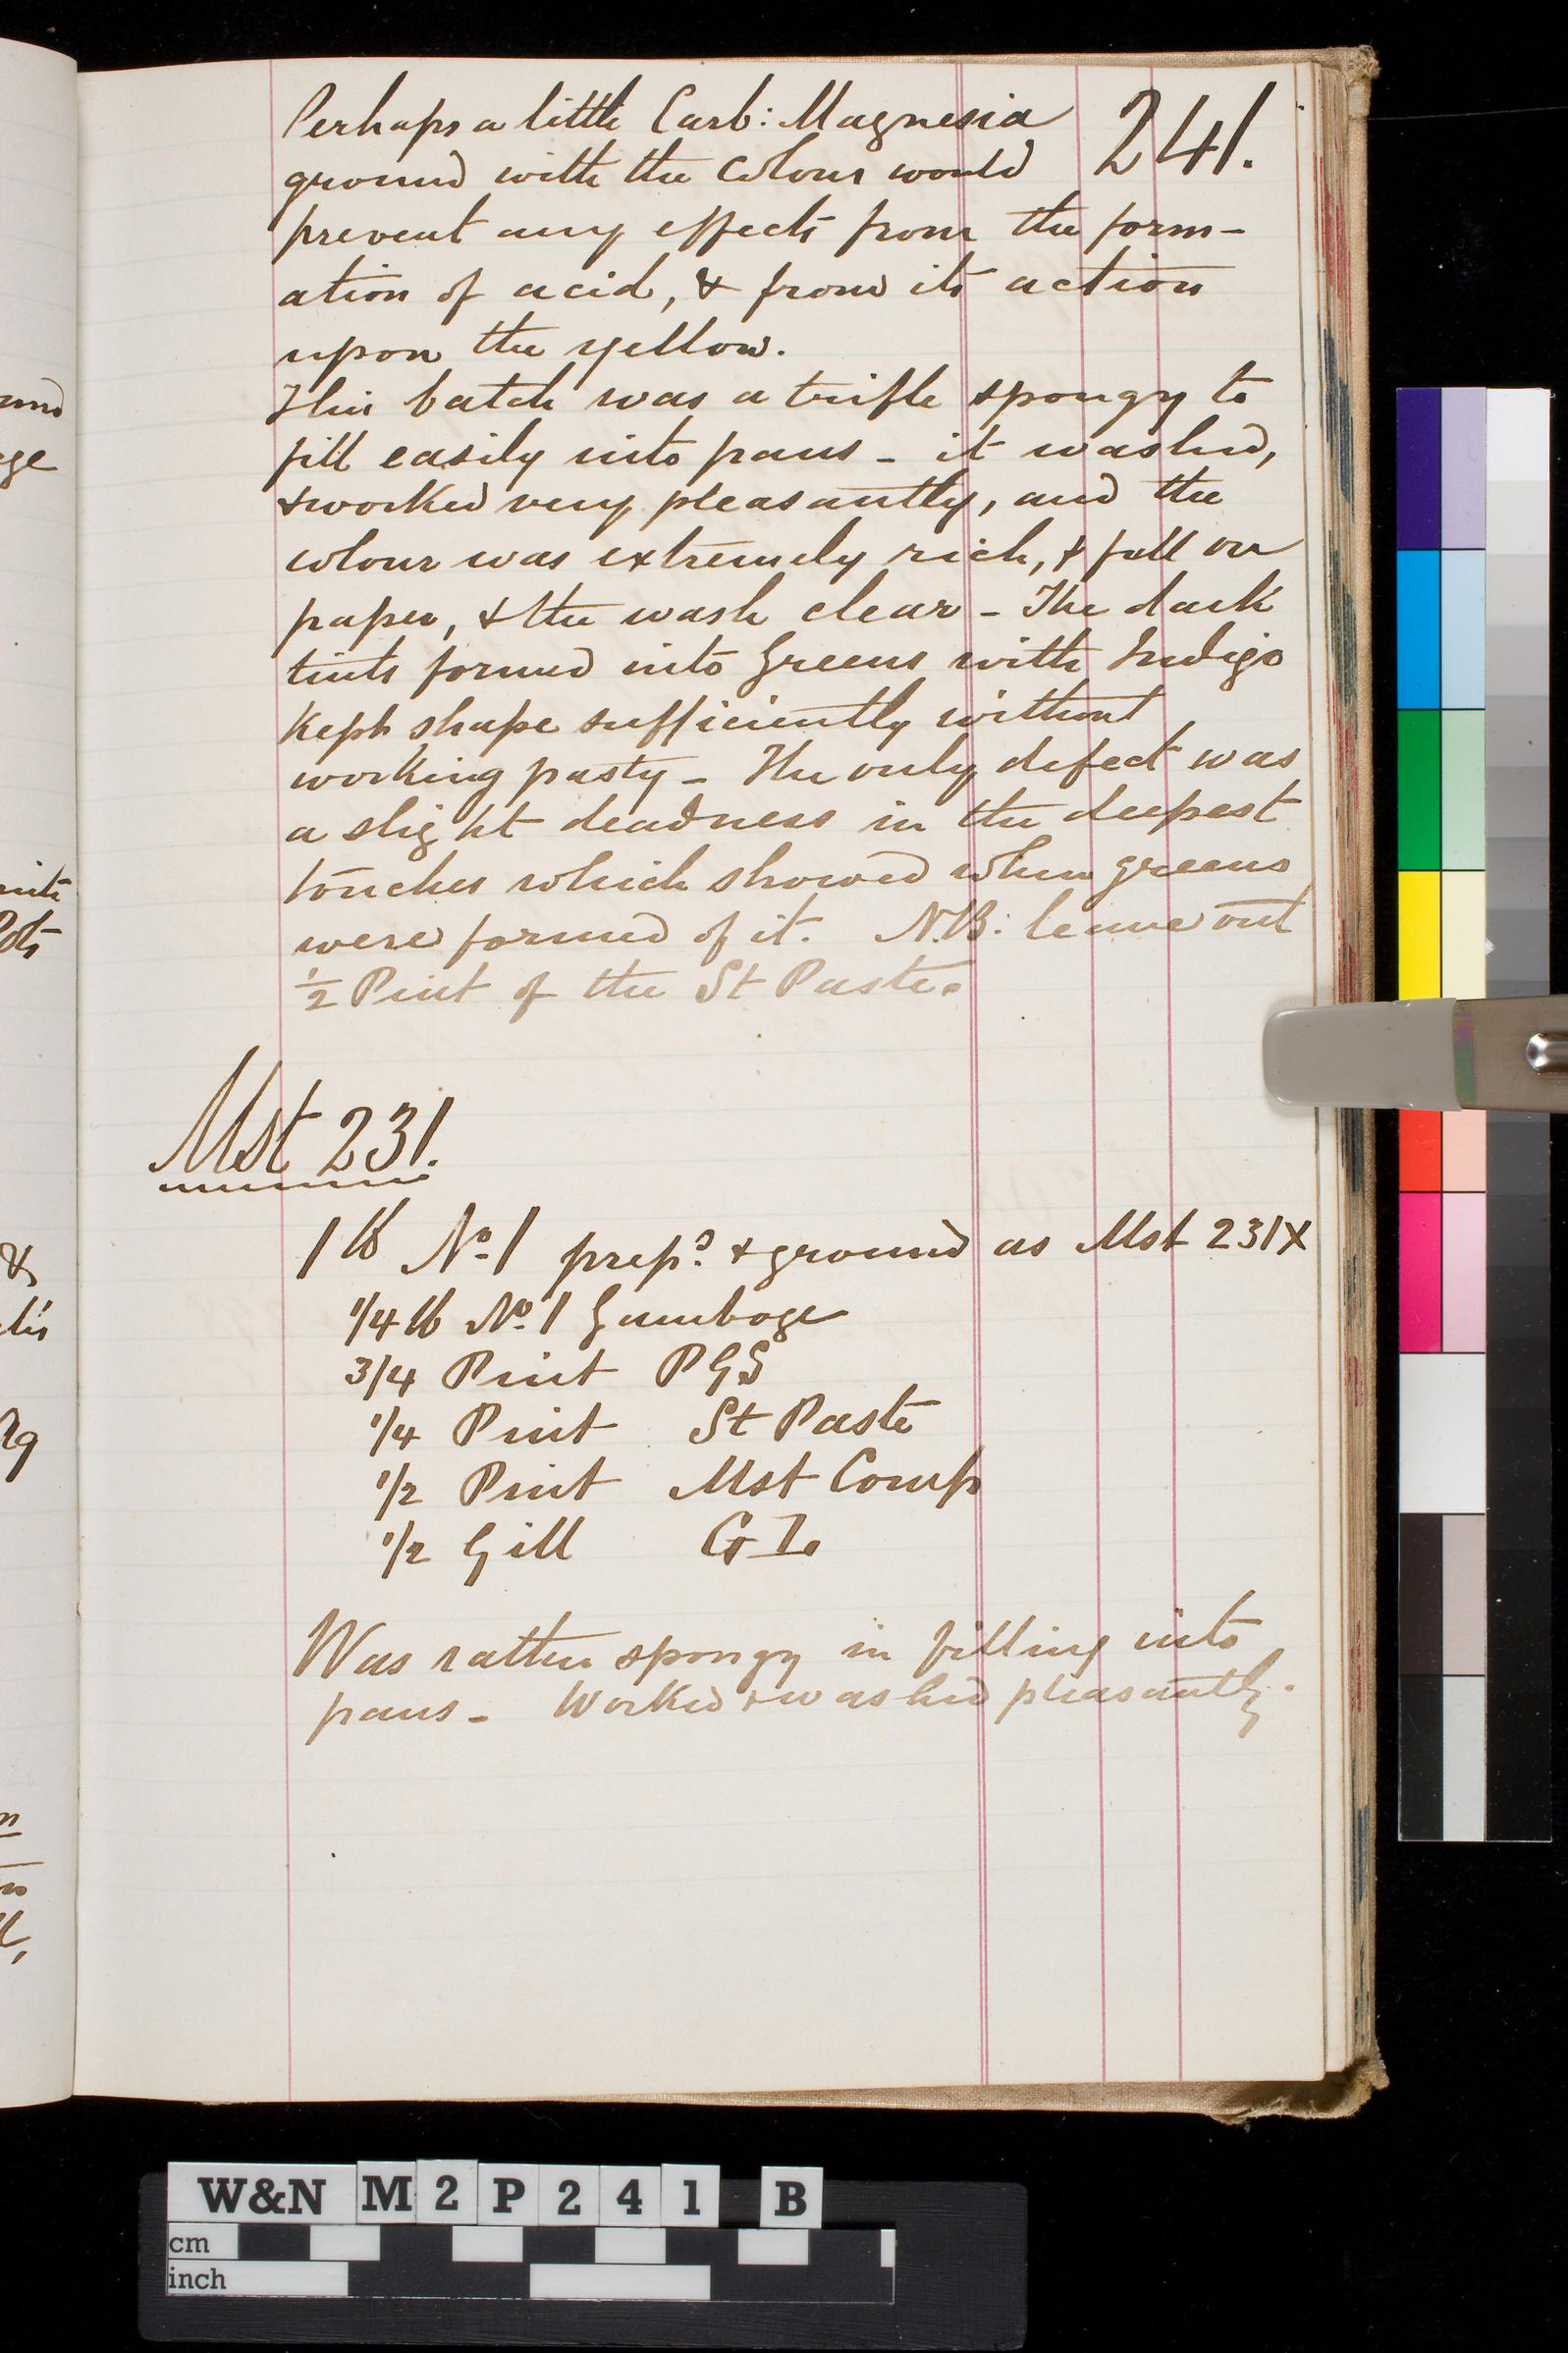 241.
Perhaps a little Carb: Magnesia
ground with the Colour would
prevent any effects from the form-
ation of acid, & from its action
upon the yellow.
This batch was a trifle spongy to
fill easily into pans - it washed,
& worked very pleasantly, and the
colour was extremely rich, & full on
paper, & the wash clear - The dark
tints formed into Greens with Indigo
Kept shape sufficiently without
working pasty - The only defect was
a slight deadness in the deepest
touches which showed when greens
were formed of it. N.B: leave out
1/2 Pint of the St Paste.
Mst 231.
1 lb No. 1 prepd. & ground as Mst 231X
1/4 lb No. 1 Gamboge
3/4 Pint PGS
1/4 Pint St Paste
1/2 Pint Mst Comp
1/2 Gill GI.
Was rather spongy in filling into
pans - Worked & washed pleasantly.
und
ge
Pots
&
W&N M2P241 B
cm
inch